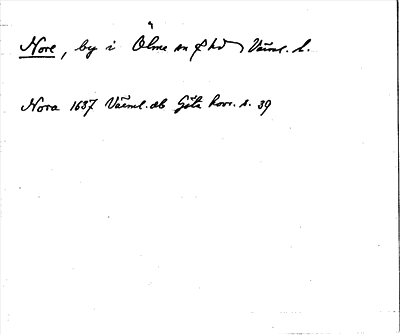 Nore, by i Ölme sn o hd Värml. l.
Nora 1637 Värml. db Göta hovr. s. 39